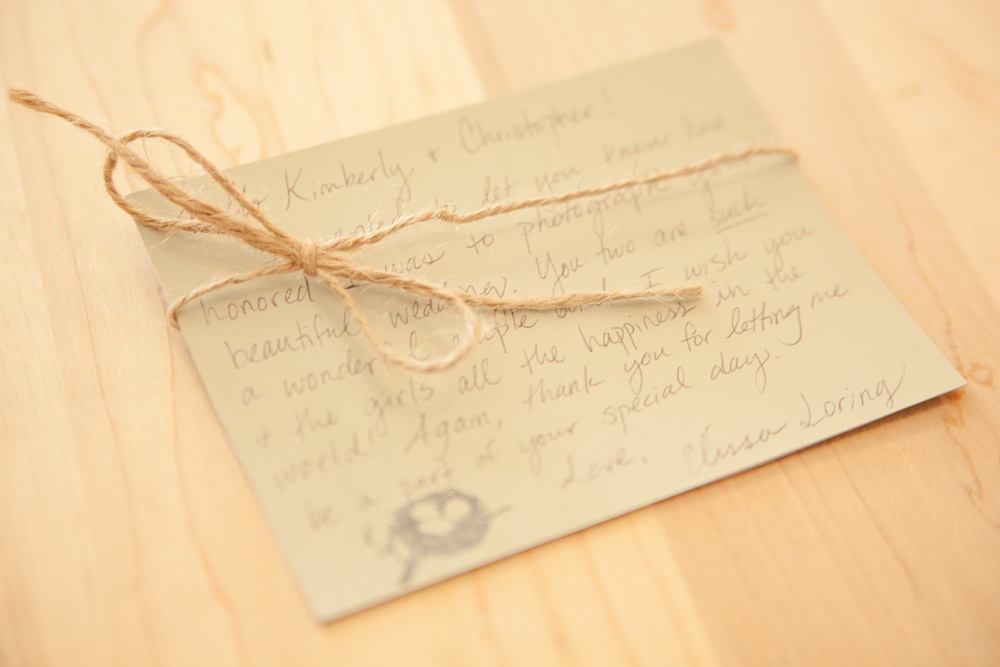 Kimberly + Christopher!
wanted to let you know how
honored I was to photograph your
beautiful wedding. You two are such
a wonderful couple and I wish you
+ the girls all the happiness in the
world! Again, thank you for letting me
be a part of your special day.
Love, Elissa Loring